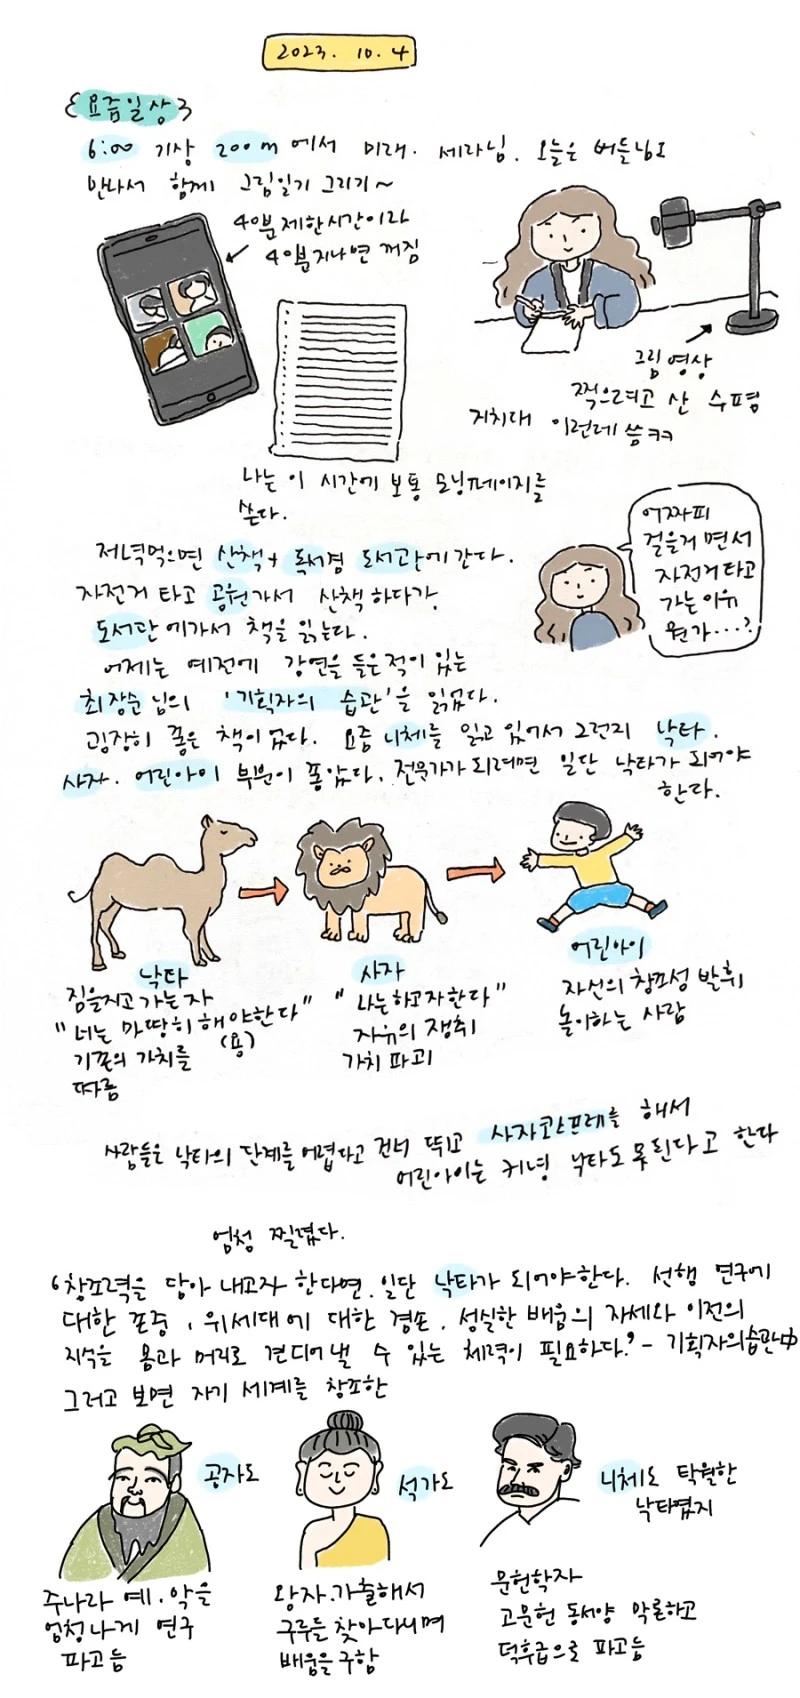 2023. 10. 4
{요즘일상}
6:00 기상 200m 에서 미래. 세라님. 오늘은 버들님도
만나서 함께 그림일기 그리기~
40분제한시간이라
40분지나면 꺼짐
그림 영상
찍으려고 산 수평
거치대 이런데 씀ㅋㅋ
나는 이 시간에 보통 모닝페이지를
쓴다.
저녁먹으면 산책+ 독서겸 도서관에 간다.
자전거 타고 공원가서 산책하다가
도서관에가서 책을 읽는다.
어제는 예전에 강연을 들은적이 있는
최장순님의 '기획자의 습관'을 읽었다.
굉장히 좋은 책이었다. 요즘 니체를 읽고 있어서 그런지 낙타.
사자. 어린아이 부분이 좋았다. 전문가가 되려면 일단 낙타가 되어야
한다.
어짜피
걸을거 면서
자전거타고
가는이유
뭔가...?
낙타
짐을지고 가는자
"너는 마땅히 해야한다"
(용)
기존의 가치를
따름
사자
"나는하고자한다"
자유의 쟁취
가치 파괴
어린아이
자신의 창조성 발휘
놀이하는 사람
사람들은 낙타의 단계를 어렵다고 건너 뛰고 사자코스프레를 해서
어린아이는 커녕 낙타도 못된다고 한다
엄청 찔렸다.
'창조력을 담아 내고자 한다면. 일단 낙타가 되어야한다. 선행 연구에
대한 존중, 위세대에 대한 경손. 성실한 배움의 자세와 이전의
지식을 몸과 머리로 견디어낼 수 있는 체력이 필요하다.' - 기획자의습관中
그러고 보면 자기 세계를 창조한
공자도
석가도
니체도 탁월한
낙타였지
주나라 예.악을
엄청나게 연구
파고듬
왕자.가출해서
구루를 찾아다니며
배움을구함
문헌학자
고문헌 동서양 막론하고
덕후급으로 파고듬